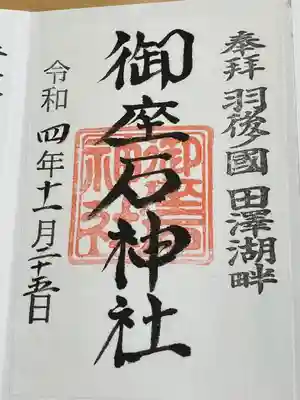 奉拝 羽後ノ國 田澤湖畔
御座石神社
御座石神社
令和四年十一月二十五日